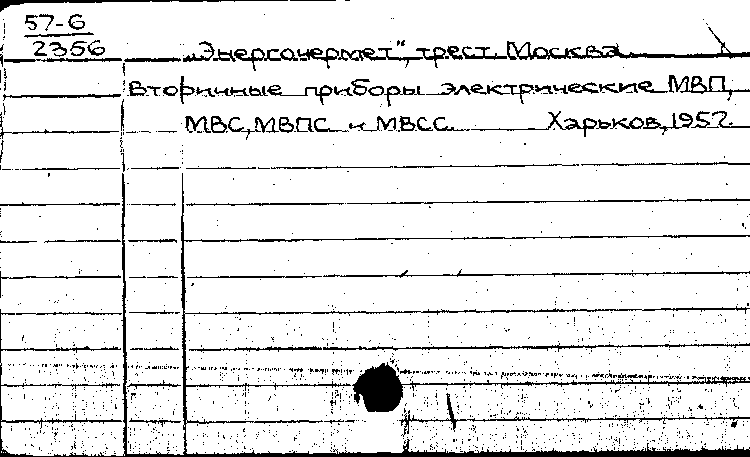 57-6
2356
„Энергочермет", трест. Москва.
Вторичные приборы электрические МВП,
МВС, МВПС и МВСС. Харьков, 1957.